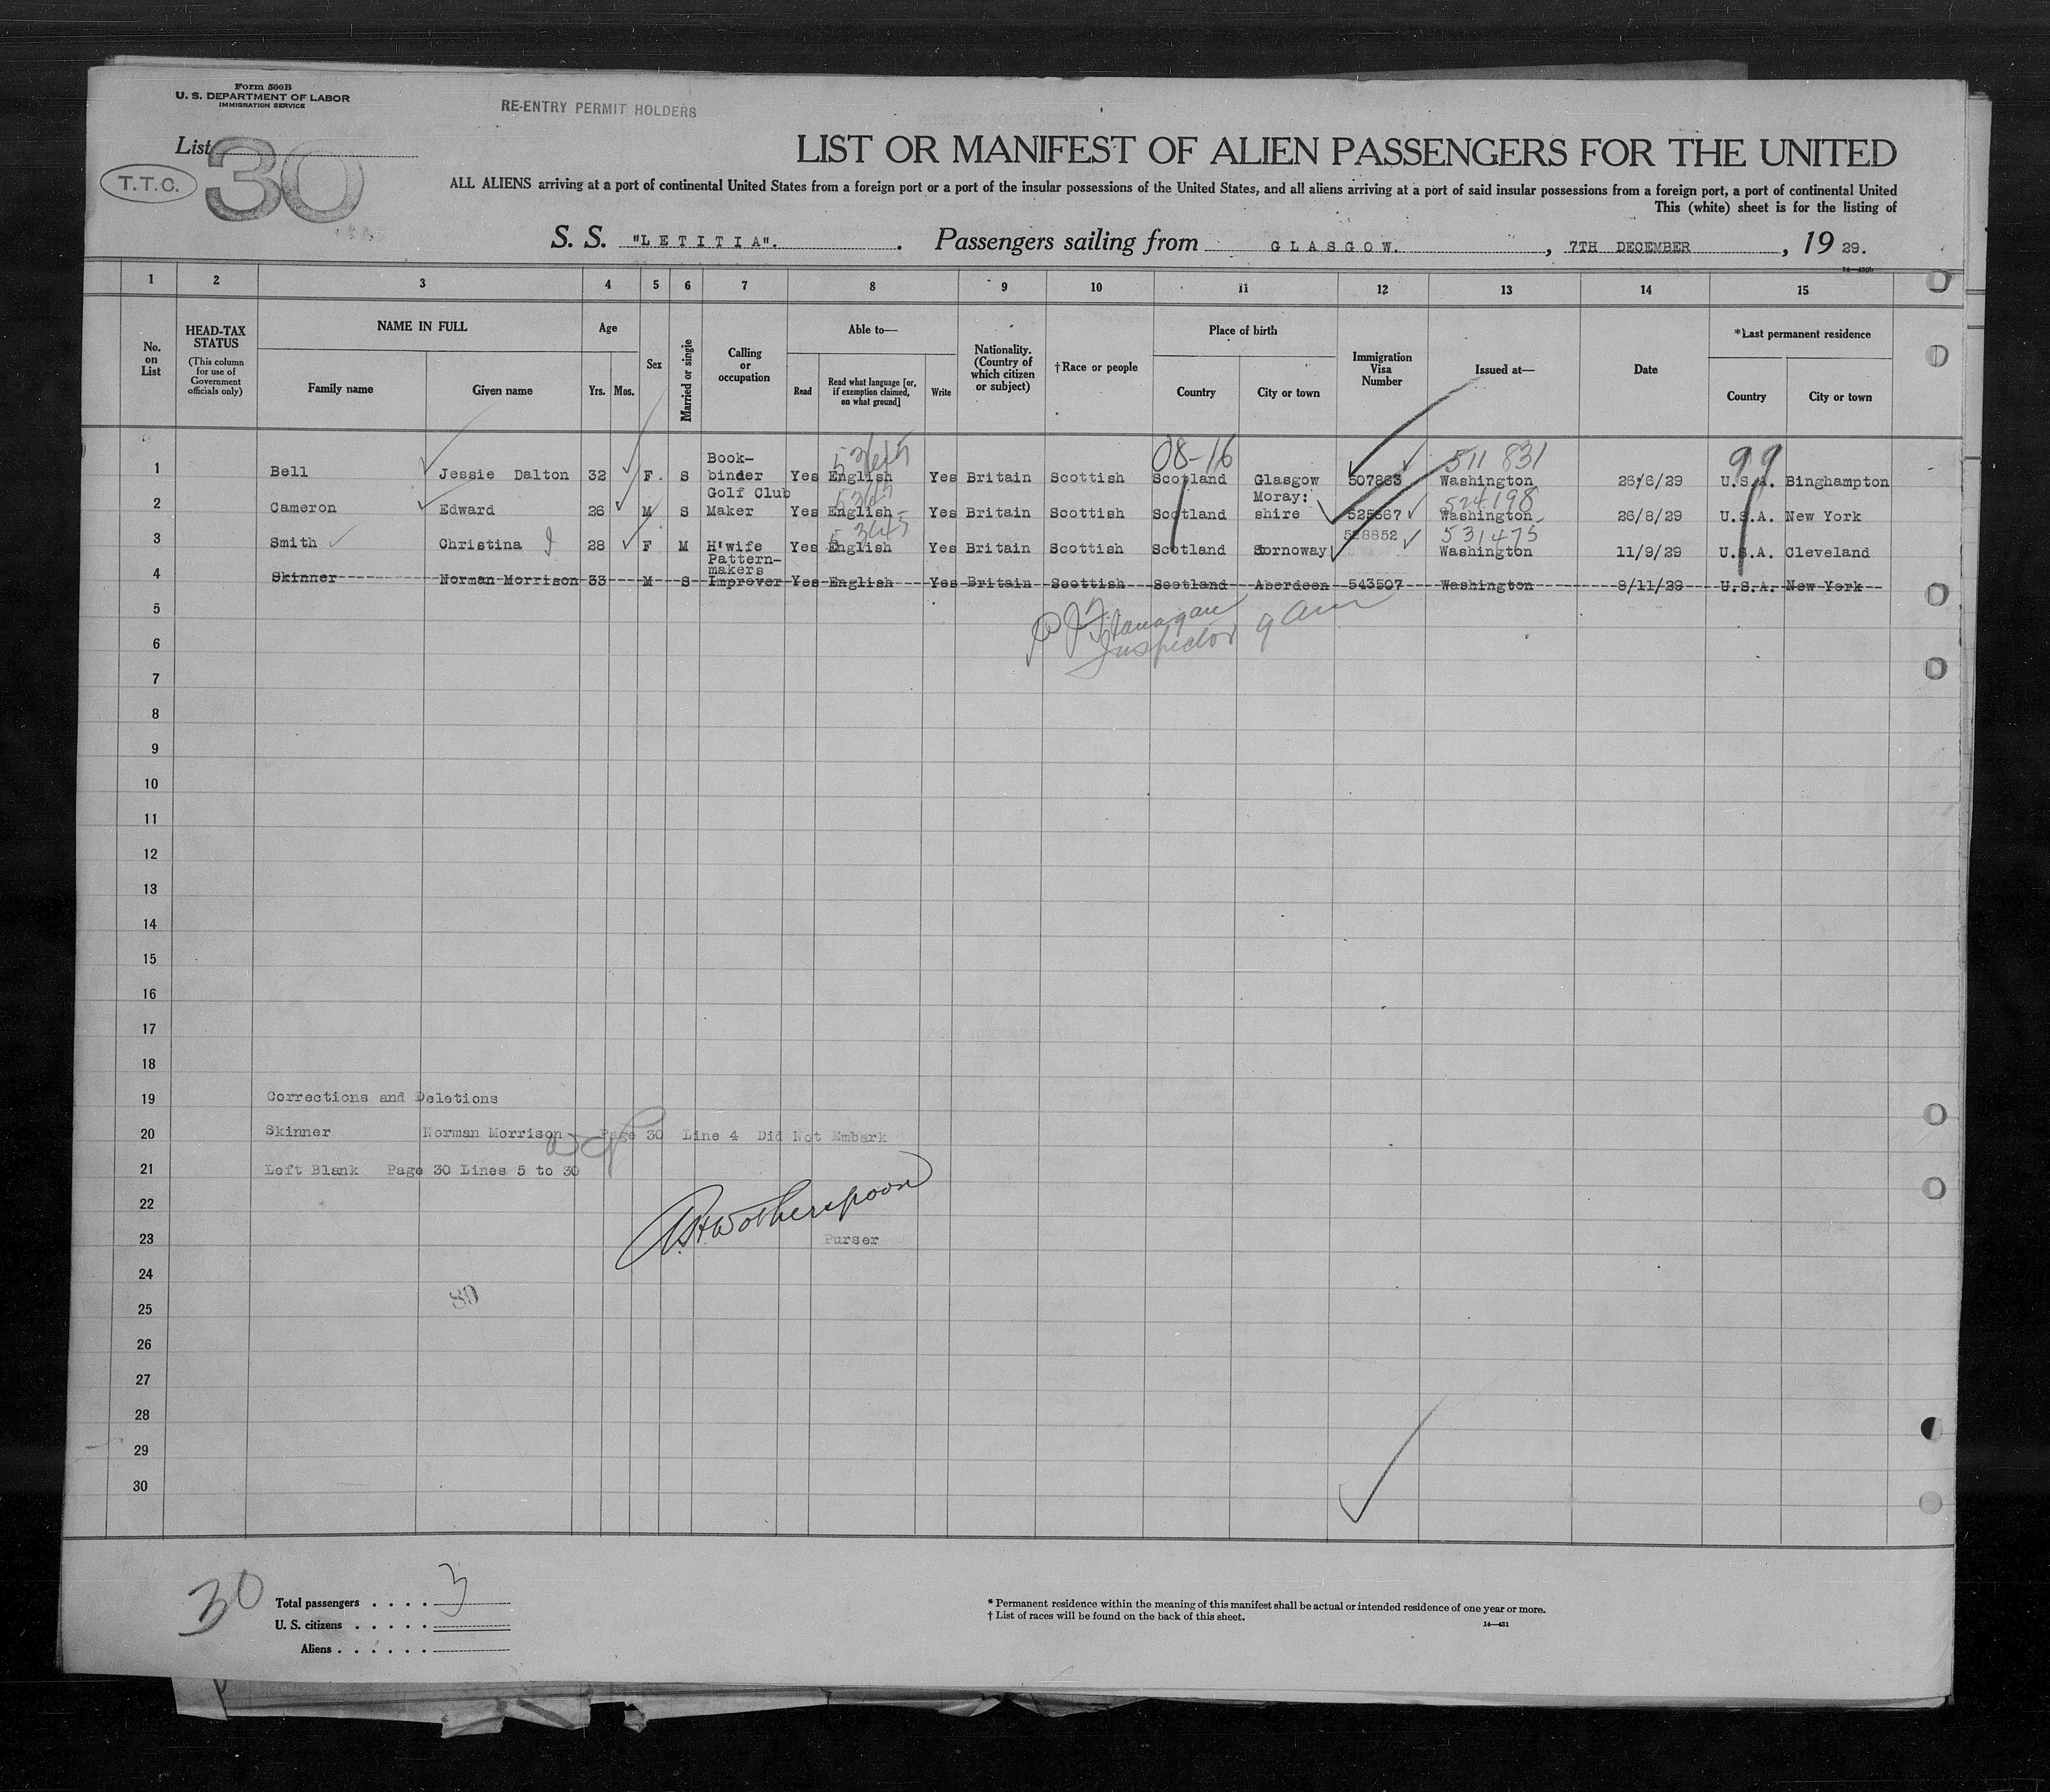 Form 500B
U. S. DEPARTMENT OF LABOR
IMMIGRATION SERVICE
RE-ENTRY PERMIT HOLDERS
List 30
T.T.C.
LIST OR MANIFEST OF ALIEN PASSENGERS FOR THE UNITED
ALL ALIENS arriving at a port of continental United States from a foreign port or a port of the insular possessions of the United States, and all aliens arriving at a port of said insular possessions from a foreign port, a port of continental United
This (white) sheet is for the listing of
S. S. "LETITIA". Passengers sailing from GLASGOW. , 7TH DECEMBER , 19 29.
14—430b
1 2 3 4 5 6 7 8 9 10 11 12 13 14 15
No. on List
HEAD-TAX STATUS
(This column for use of Government officials only)
NAME IN FULL
Family name Given name
Age
Yrs. Mos.
Sex
Married or single
Calling or occupation
Able to—
Read Read what language [or, if exemption claimed, on what ground] Write
Nationality. (Country of which citizen or subject)
†Race or people
Place of birth
Country City or town
Immigration Visa Number
Issued at—
Date
*Last permanent residence
Country City or town
08-16 511 831 99
1 Bell Jessie Dalton 32 F. S Book-binder Yes English Yes Britain Scottish Scotland Glasgow 507863 Washington 26/6/29 U.S.A. Binghampton
524198
2 Cameron Edward 26 M S Golf Club Maker Yes English Yes Britain Scottish Scotland Moray: shire 525567 Washington 26/8/29 U.S.A. New York
531475
3 Smith Christina I 28 F M H'wife Yes English Yes Britain Scottish Scotland Sornoway 528852 Washington 11/9/29 U.S.A. Cleveland
4 Skinner Norman Morrison 33 M S Pattern-makers Improver Yes English Yes Britain Scottish Scotland Aberdeen 543507 Washington 8/11/29 U.S.A. New York
5
Flanagan
6
Inspector 9 am
7
8
9
10
11
12
13
14
15
16
17
18
19 Corrections and Deletions
20 Skinner Norman Morrison Page 30 Line 4 Did Not Embark
21 Left Blank Page 30 Lines 5 to 30
22
Wotherspoon
23 Purser
24
25
26
27
28
29
30
30
Total passengers . . . . 3
U. S. citizens . . . . .
Aliens . . . . . .
* Permanent residence within the meaning of this manifest shall be actual or intended residence of one year or more.
† List of races will be found on the back of this sheet.
14—431